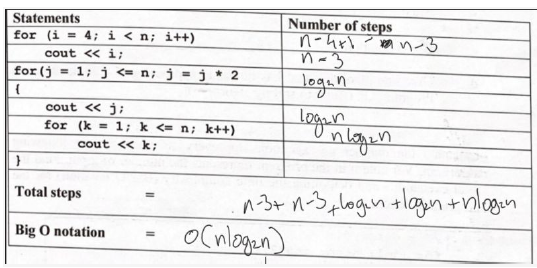 Statements Number of steps
for (i = 4; i < n; i++) n-4+1 - n-3
cout << i; n-3
for(j = 1; j <= n; j = j * 2 log₂n
{
cout << j; log₂n
for (k = 1; k <= n; k++) nlog₂n
cout << k;
}
Total steps = n-3+ n-3+log₂n +log₂n + nlog₂n
Big O notation = O(nlog₂n)